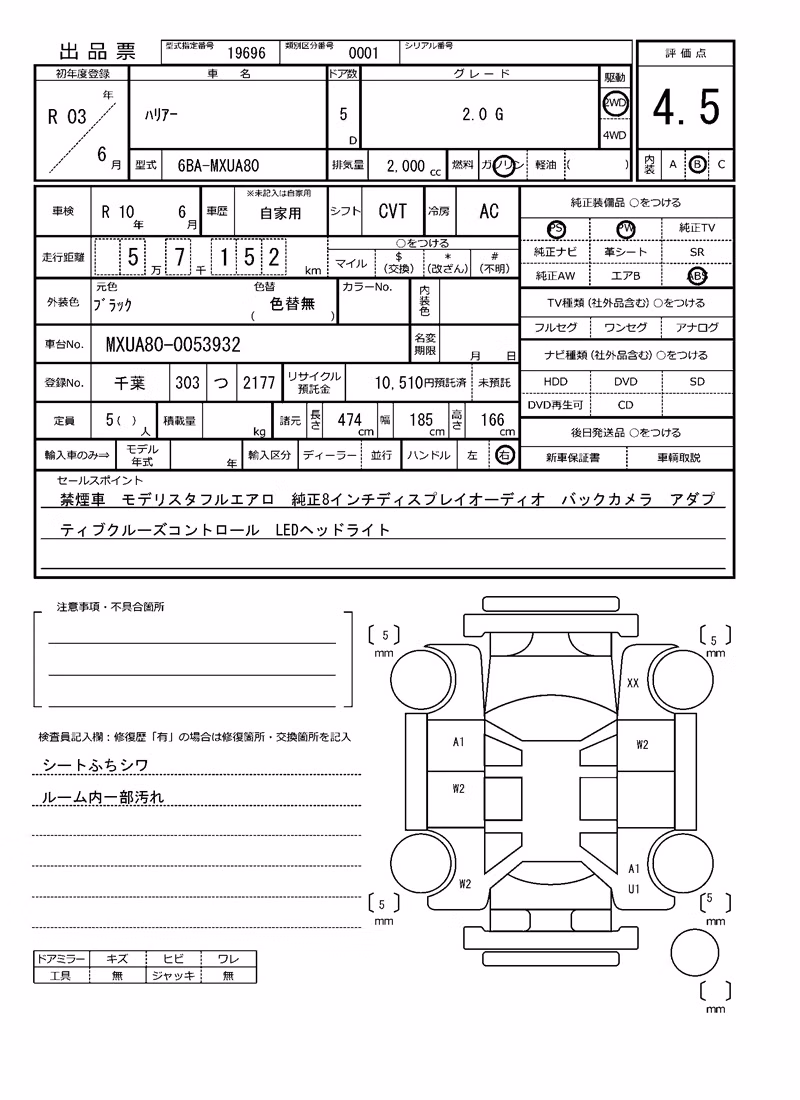 出品票 型式指定番号 19696 類別区分番号 0001 シリアル番号 評価点
初年度登録 車 名 ドア数 グレード 駆動
R 03 年 6 月 ハリアー 5 D 2.0 G 2WD 4WD 4.5
型式 6BA-MXUA80 排気量 2,000 cc 燃料 ガソリン 軽油 ( ) 内装 A B C
車検 R 10 年 6 月 車歴 ※未記入は自家用 自家用 シフト CVT 冷房 AC 純正装備品 ○をつける
PS PW 純正TV
走行距離 5 万 7 千 1 5 2 km ○をつける
マイル $(交換) *(改ざん) #(不明)
純正ナビ 革シート SR
純正AW エアB ABS
外装色 元色 ブラック 色替 ( 色替無 ) カラーNo. 内装色
TV種類(社外品含む) ○をつける
フルセグ ワンセグ アナログ
車台No. MXUA80-0053932 名変期限 月 日
ナビ種類(社外品含む) ○をつける
登録No. 千葉 303 つ 2177 リサイクル預託金 10,510円預託済 未預託
HDD DVD SD
DVD再生可 CD
定員 5( ) 人 積載量 kg 諸元 長さ 474 cm 幅 185 cm 高さ 166 cm
後日発送品 ○をつける
輸入車のみ⇒ モデル年式 年 輸入区分 ディーラー 並行 ハンドル 左 右
新車保証書 車輌取説
セールスポイント
禁煙車 モデリスタフルエアロ 純正8インチディスプレイオーディオ バックカメラ アダプ
ティブクルーズコントロール LEDヘッドライト
注意事項・不具合箇所
検査員記入欄：修復歴「有」の場合は修復箇所・交換箇所を記入
シートふちシワ
ルーム内一部汚れ
ドアミラー キズ ヒビ ワレ
工具 無 ジャッキ 無
[ 5 ] mm
[ 5 ] mm
XX
A1
W2
W2
W2
A1
U1
[ 5 ] mm
[ 5 ] mm
[ ] mm